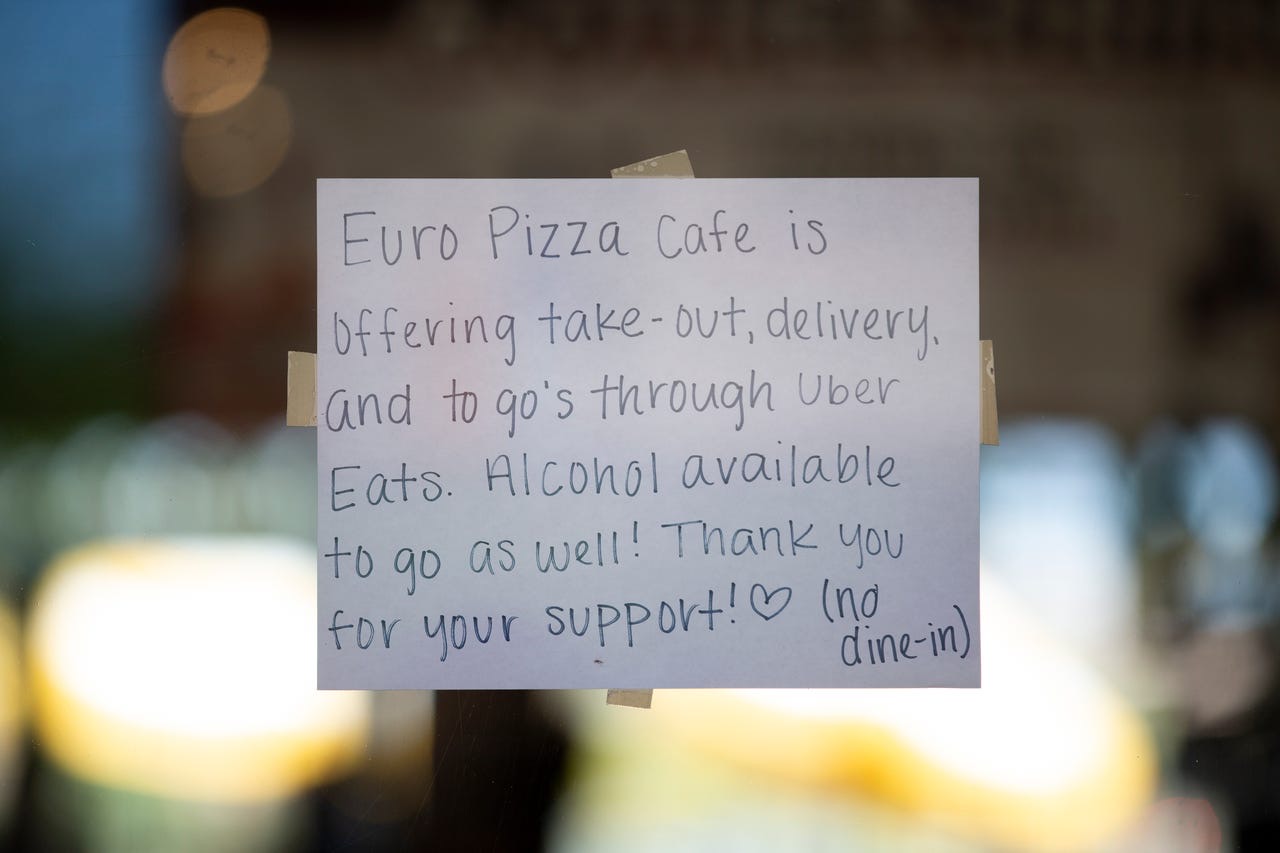 Euro Pizza Cafe is
offering take-out, delivery,
and to go's through Uber
Eats. Alcohol available
to go as well! Thank you
for your support! ♡ (no
dine-in)